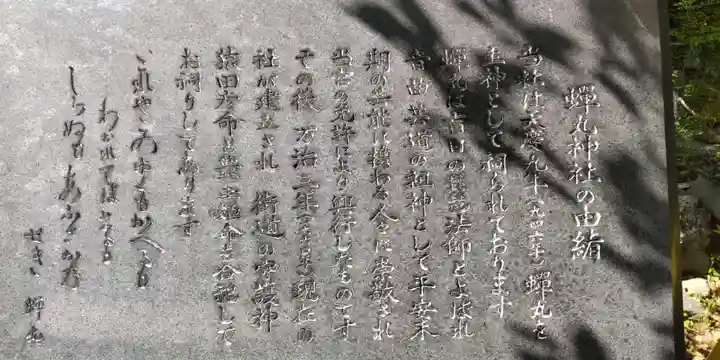 蟬丸神社の由緒
当社は天慶九年(九四六年)蟬丸を
主神として祠られております
蟬丸は盲目の琵琶法師とよばれ
音曲芸道の祖神として平安末
期の芸能に携わる人々に崇敬され
当宮の免許により興行したものです
その後万治三年現在の
社が建立され街道の守護神
猿田彦命と豊玉姫命を合祀して
お祠りして居ります
これやこのゆくもかへるも
わかれてはしるも
しらぬもあふさかの
せき 蟬丸